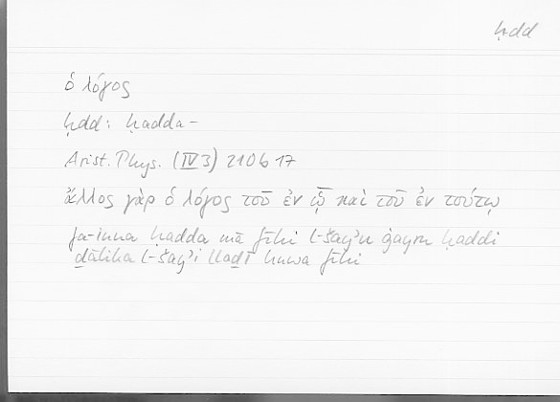 ḥdd
ὁ λόγος
ḥdd: ḥadda –
Arist. Phys. (IV 3) 210b17
ἄλλος γὰρ ὁ λόγος τοῦ ἐν ᾧ καὶ τοῦ ἐν τούτῳ
fa-inna ḥadda mā fīhi l-šayʾu ġayru ḥaddi
ḏālika l-šayʾi llaḏī huwa fīhi